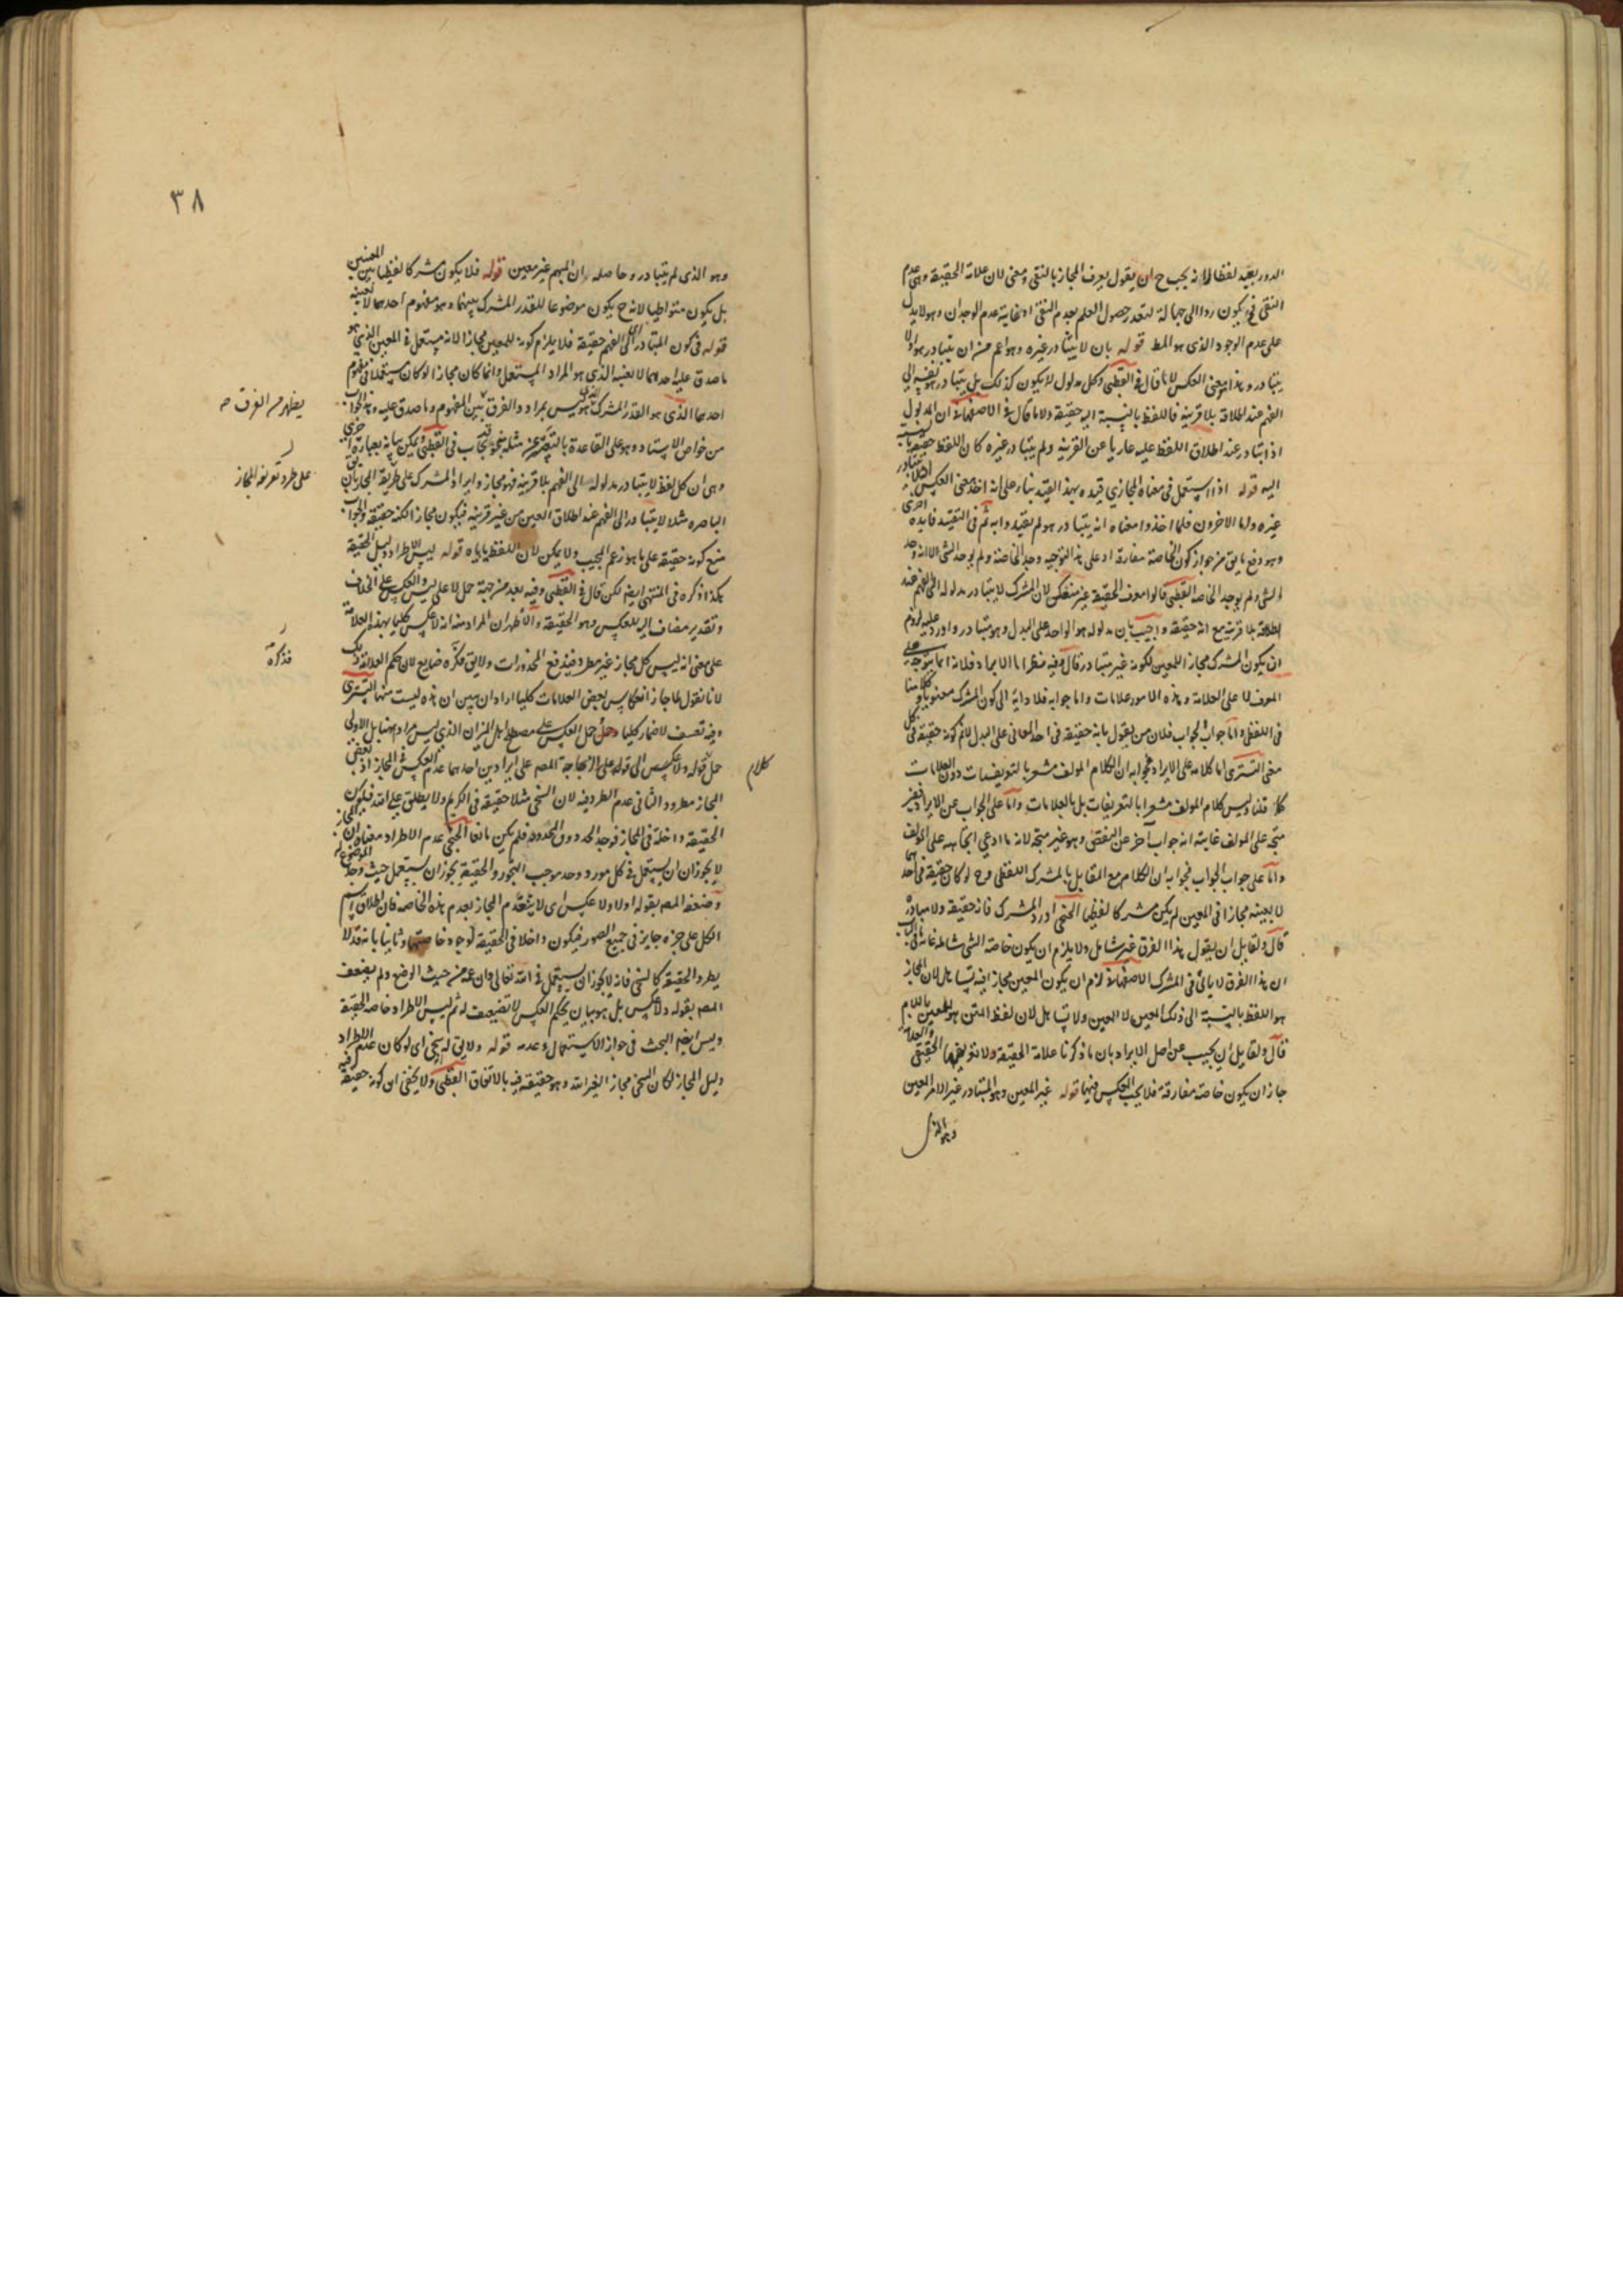 الدور بقيد لفظا لانه يجب ح ان يقول يعرف المجاز بالنقي ومعنى لان علامة الحقيقة وهى عدم
النفى في يكون ردا الى جهالة لتعذر حصول العلم بعدم النفى اذ غايته عدم الوجدان وهو لا يدل
على عدم الوجود الذى هو المط قوله بان لا يتبادر غيره وهو اعم من ان يتبادر هو اولا
يتبادر وهذا معنى العكس لا ما قال في القطبى وكل مدلول لا يكون كذلك بل يتبادر هو بنفسه الى
الفهم عند اطلاقه بلا قرينة فاللفظ بالنسبة اليه حقيقة ولا ما قال في الاصفهانى ان المدلول
اذا تبادر عند اطلاق اللفظ عليه عاريا عن القرينة ولم يتبادر غيره كان اللفظ حقيقة بالنسبة
اليه قوله اذا استعمل في معناه المجازي قيده بهذا القيد بناء على انه اخذ معنى العكس
غيره واما الاخرون فلما اخذوا معناه انه يتبادر هو لم يقيدوا به ثم في التقييد فايدة اخرى
وهو دفع ما يق من جواز كون الخاصة مفارقة اذ على هذا التوجيه وجد الخاصة ولم يوجد الشى لا انه وجد
الشى ولم يوجد الخاصة القطبى قالوا معرف الحقيقة غير منعكس لان المشترك لا يتبادر مدلوله الى الفهم عند
اطلاقه بلا قرينة مع انه حقيقة واجيب بان مدلوله هو الواحد على البدل وهو متبادر واورد عليه لزوم
ان يكون المشترك مجازا للمعين لكونه غير متبادر قال وفيه نظر اما الايراد فلانه انما يتوجه على
المعرف لا على العلامة وهذه الامور علامات واما جوابه فلادائه الى كون المشترك معنويا وكلامنا
في اللفظى واما جواب الجواب فلان من يقول بانه حقيقة في احد المعانى على البدل لا ثم كونه حقيقة في كل
معنى التسترى اما كلامه على الايراد فجوابه ان الكلام المولف مشعر بالتعريفات دون العلامات
كلا قلنا وليس كلام المولف مشعرا بالتعريفات بل بالعلامات واما على الجواب عن الايراد فغير
متجه على المولف غايته انه جواب اخر عن النقض وهو غير متجه لانه ما ادعى اتجاهه على المولف
واما على جواب الجواب فجوابه ان الكلام مع القايل بالمشترك اللفظى وح لو كان حقيقة في احدهما
لا بعينه مجازا في المعين لم يكن مشتركا لفظيا الخنجى اورد المشترك فانه حقيقة ولا مبادرة
قال ولقايل ان يقول هذا الفرق غير شامل ولا يلزم ان يكون خاصة الشى شاملة غاية في الباب
ان هذا الفرق لا ياتى في المشترك الاصفهانى لزم ان يكون المعين مجازا فيه تساهل لان المجاز
هو اللفظ بالنسبة الى ذلك المعين لا المعين ولا تساهل لان لفظ المتن هو للمعين باللام
قال ولقايل ان يجيب عن اصل الايراد بان ما ذكرنا علامة الحقيقة ولا تعريفها الحقيقى والعلامة
جاز ان يكون خاصة مفارقة فلا يجب العكس فيها قوله غير المعين وهو المتبادر غير الامر المعين
وهو الذى
٣٨
وهو الذى لم يتبادر وحاصله ان المبهم غير معين قوله فلا يكون مشتركا لفظيا بين المعنيين
بل يكون متواطيا لانه ح يكون موضوعا للقدر المشترك بينهما وهو مفهوم احدهما لا بعينه
قوله في كون المتبادر الى الفهم حقيقة فلا يلزم كونه للمعين مجازا لانه مستعمل في المعين الذي هو
ما صدق عليه احدهما لا بعينه الذى هو المراد المستعمل وانما كان مجازا لو كان مستعملا في مفهوم
احدهما الذى هو القدر المشترك لانه ليس بمراد والفرق بين المفهوم وما صدق عليه وهذا الجواب
من خواص الاستاد وهو على القاعدة بالتقصي عن مثله نحو يجاب في القطبى ويمكن بيانه بعبارة اخرى
وهى ان كل لفظ لا يتبادر مدلوله الى الفهم بلا قرينة فهو مجاز وايراد المشترك على طريقة المجاز بان يق
الباصرة مثلا لا يتبادر الى الفهم عند اطلاق العين من غير قرينة فيكون مجازا لكنه حقيقة والجواب
منع كونه حقيقة على ما هو زعم المجيب ولا يمكن لان اللفظ ياباه قوله ليس الاطراد دليل الحقيقة
هكذا ذكره في المنتهى ايضا لكن قال في القطبى وفيه بعد من جهة حمل لا على ليس والعكس على الخلاف
وتقدير مضاف اليه للعكس وهو الحقيقة والاظهر ان المراد منه انه لا عكس كليا بهذه العلامة
على معنى انه ليس كل مجاز غير مطرد فيندفع المحذورات ولا يق فذكره ضايع لان حكم العلامة ذلك
لانا نقول لما جاز انعكاس بعض العلامات كليا اراد ان يبين ان هذه ليست منها التسترى
وفيه تعسف لاضمار كليا وحمل العكس على مصطلح اهل الميزان الذى ليس مراده ههنا بل الاولى
حمل قوله ولا عكس الى قوله على الزجاجة المصه على ايرادين احدهما عدم العكس في المجاز اذ بعض
المجاز مطرد والثانى عدم الطرد فيه لان السخى مثلا حقيقة في الكريم ولا يطلق على الله فيكون
الحقيقة داخلة في المجاز فوجد الحد دون المحدود فلم يكن مانعا الخنجى عدم الاطراد معناه ان المجاز
لا يجوز ان يستعمل في كل مورد وجد موجب التجوز والحقيقة يجوز ان يستعمل حيث وجد الموضوع له
وضعفه المصه بقوله اولا ولا عكس اى لا ينعدم المجاز بعدم هذه الخاصة فان اطلاق اسم
الكل على جزءه جايز في جميع الصور فيكون داخلا في الحقيقة لوجود خاصتها وثانيا بانه قد لا
يطرد الحقيقة كالسخى فانه لا يجوز ان يستعمل في الله تعالى وان عم من حيث الوضع ولم يضعف
المصه بقوله ولا عكس بل هو بيان بحكم العكس لا تضعيف له ثم ليس الاطراد خاصة الحقيقة
وليس ايضا البحث في جواز الاستعمال وعدمه قوله ولا يق له سخى اى لو كان عدم الاطراد
دليل المجاز لكان السخى مجازا لغير الله وهو حقيقة فيه بالاتفاق القطبى ولا يخفى ان كونه حقيقة فيه
يظهر من الفرق صه
على طرد تعريف المجاز
فذكره
كلام